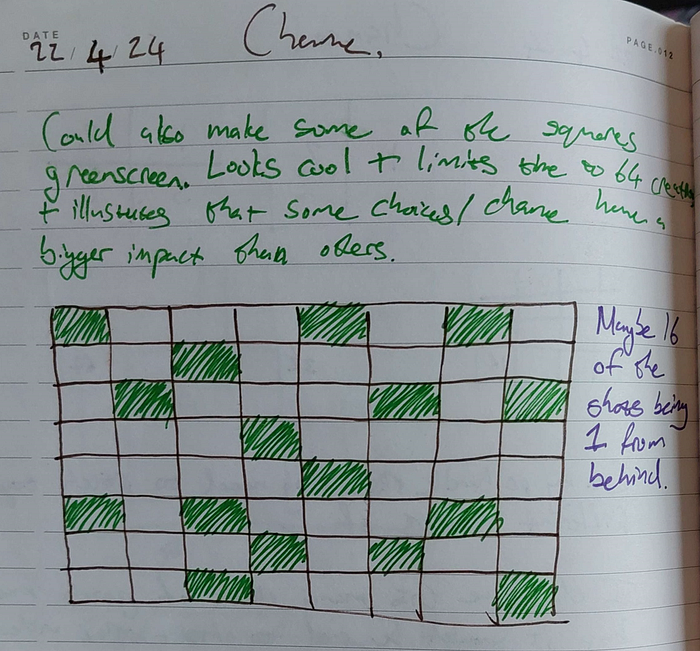 DATE
22/4/24
Chance.
PAGE.012
Could also make some of the squares
greenscreen. Looks cool + limits time to 64
+ illustrates that some choices/chance have a
bigger impact than others.
Maybe 16
of the
shots being
1 from
behind.